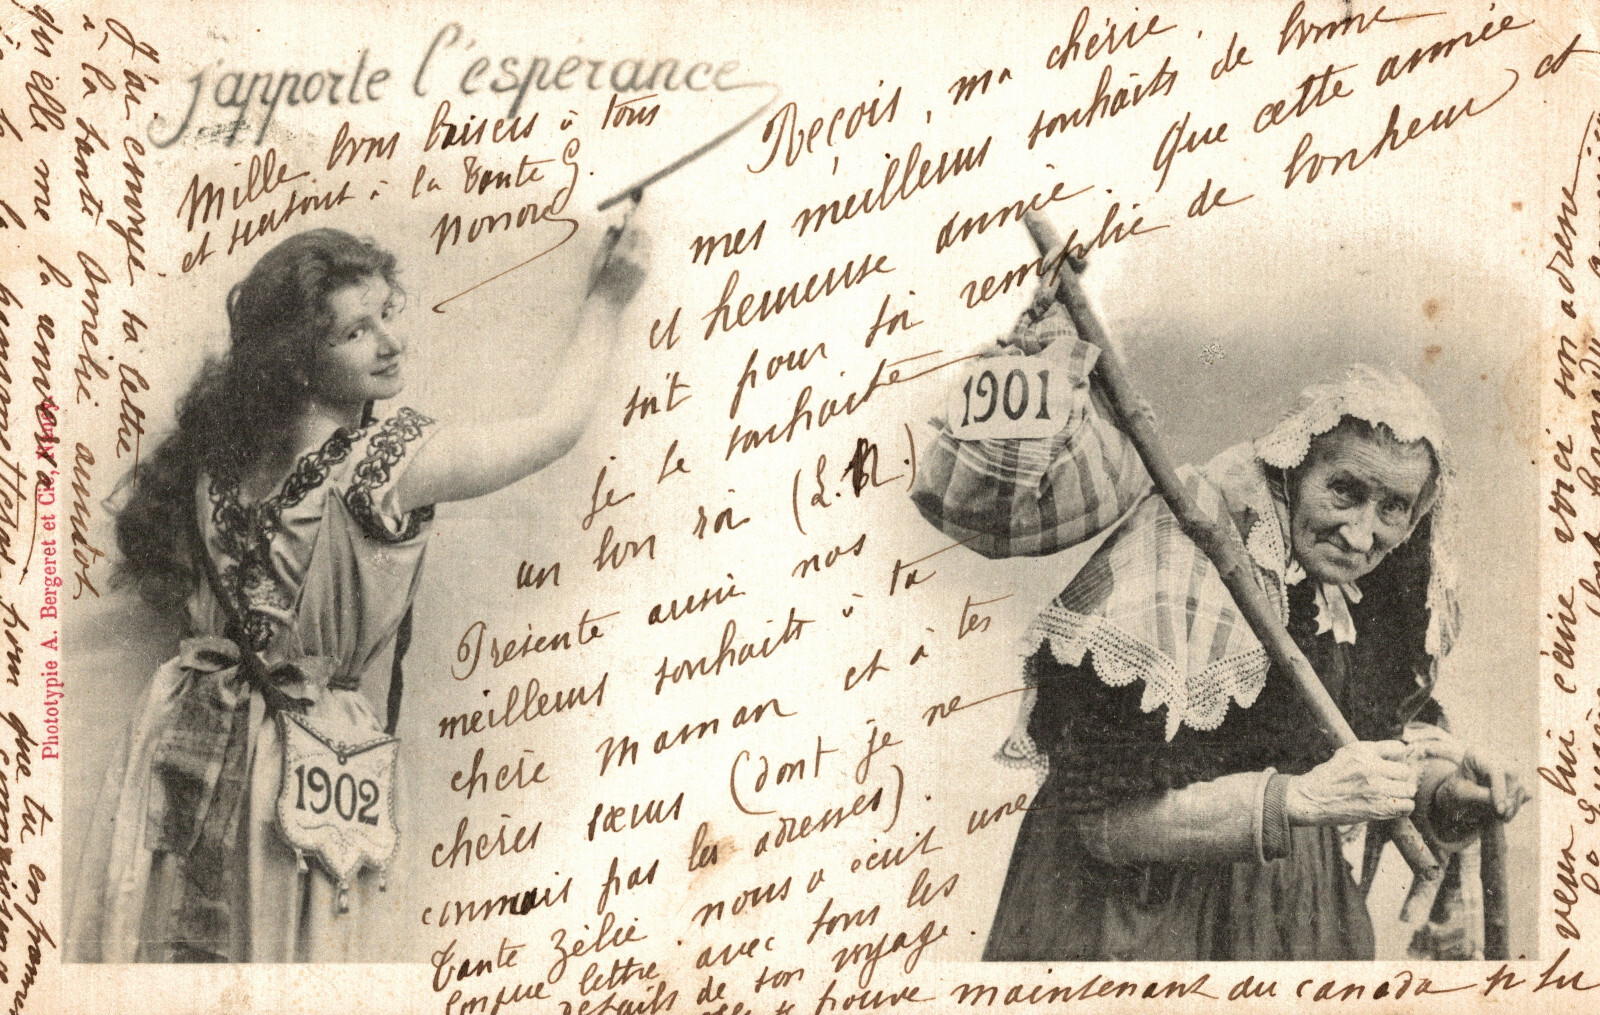 j'apporte l'espérance
Mille bons baisers à tous
et surtout à la Tante G.
Reçois, ma chérie,
mes meilleurs souhaits de bonne
et heureuse année. Que cette année
soit pour toi remplie de bonheur et
je te souhaite
un bon roi (L. R.)
Présente aussi nos
meilleurs souhaits à ta
chère maman et à tes
chères sœurs (dont je ne
connais pas les adresses).
Tante Zélie nous a écrit une
longue lettre avec tous les
détails de son voyage.
elle se trouve maintenant au canada si tu
veux lui écrire voici son adresse
J'ai envoyé ta lettre
à la tante Amélie aussitôt
qu'elle me la
1901
1902
Phototypie A. Bergeret et Cie, Nancy